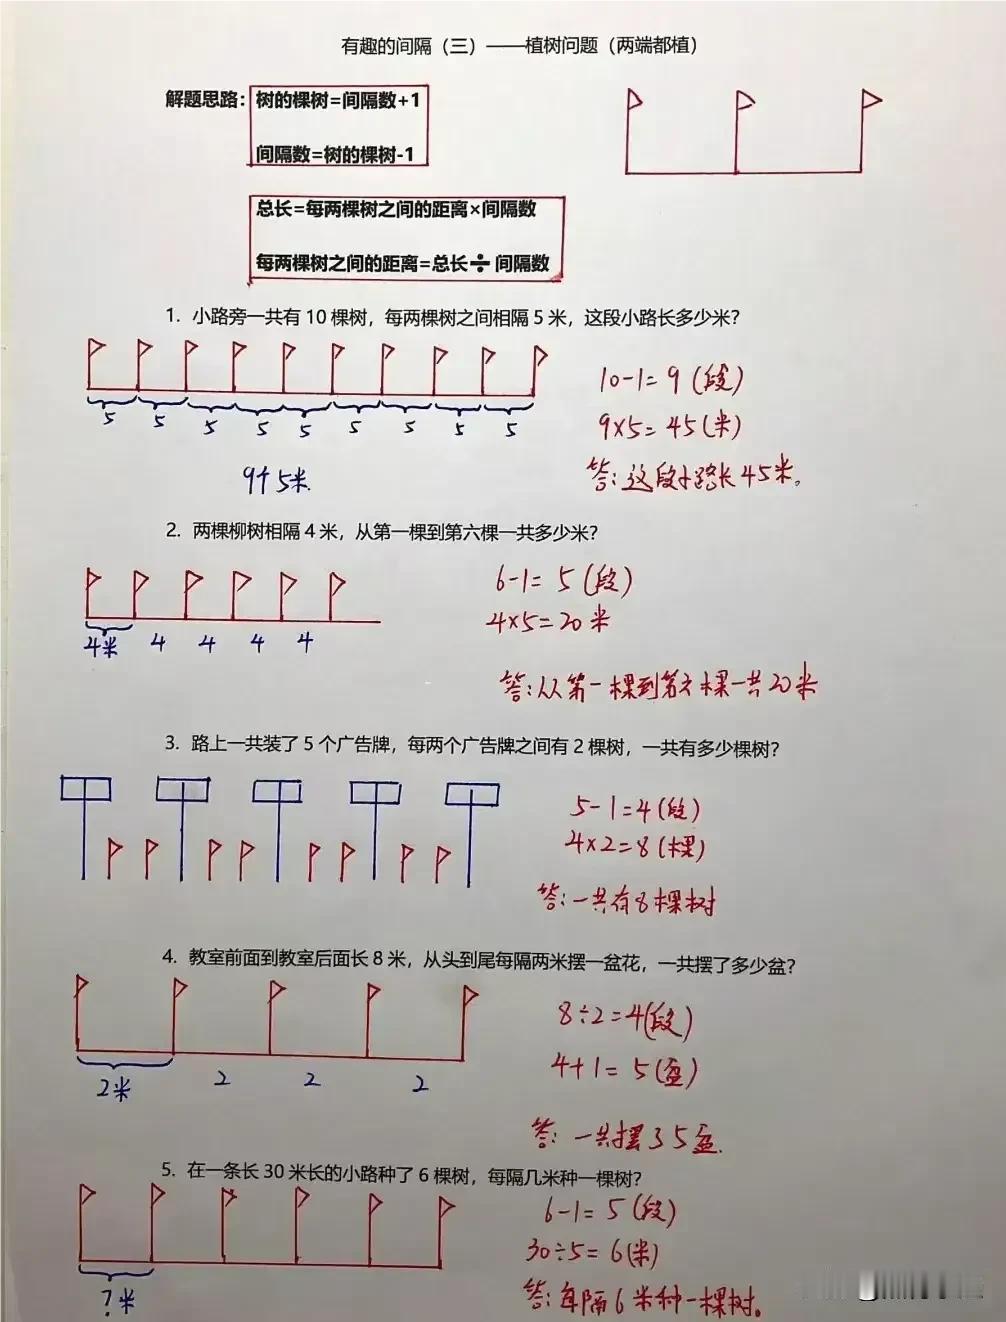 有趣的间隔（三）——植树问题（两端都植）
解题思路：树的棵树=间隔数+1
间隔数=树的棵树-1
总长=每两棵树之间的距离×间隔数
每两棵树之间的距离=总长÷间隔数
1. 小路旁一共有 10 棵树，每两棵树之间相隔 5 米，这段小路长多少米？
10-1=9（段）
9×5=45（米）
5 5 5 5 5 5 5 5 5
9个5米.
答：这段小路长45米。
2. 两棵柳树相隔 4 米，从第一棵到第六棵一共多少米？
6-1=5（段）
4×5=20米
4米 4 4 4 4
答：从第一棵到第六棵一共20米
3. 路上一共装了 5 个广告牌，每两个广告牌之间有 2 棵树，一共有多少棵树？
5-1=4（段）
4×2=8（棵）
答：一共有8棵树
4. 教室前面到教室后面长 8 米，从头到尾每隔两米摆一盆花，一共摆了多少盆？
8÷2=4（段）
4+1=5（盆）
2米 2 2 2
答：一共摆了5盆.
5. 在一条长 30 米长的小路种了 6 棵树，每隔几米种一棵树？
6-1=5（段）
30÷5=6（米）
?米
答：每隔6米种一棵树。